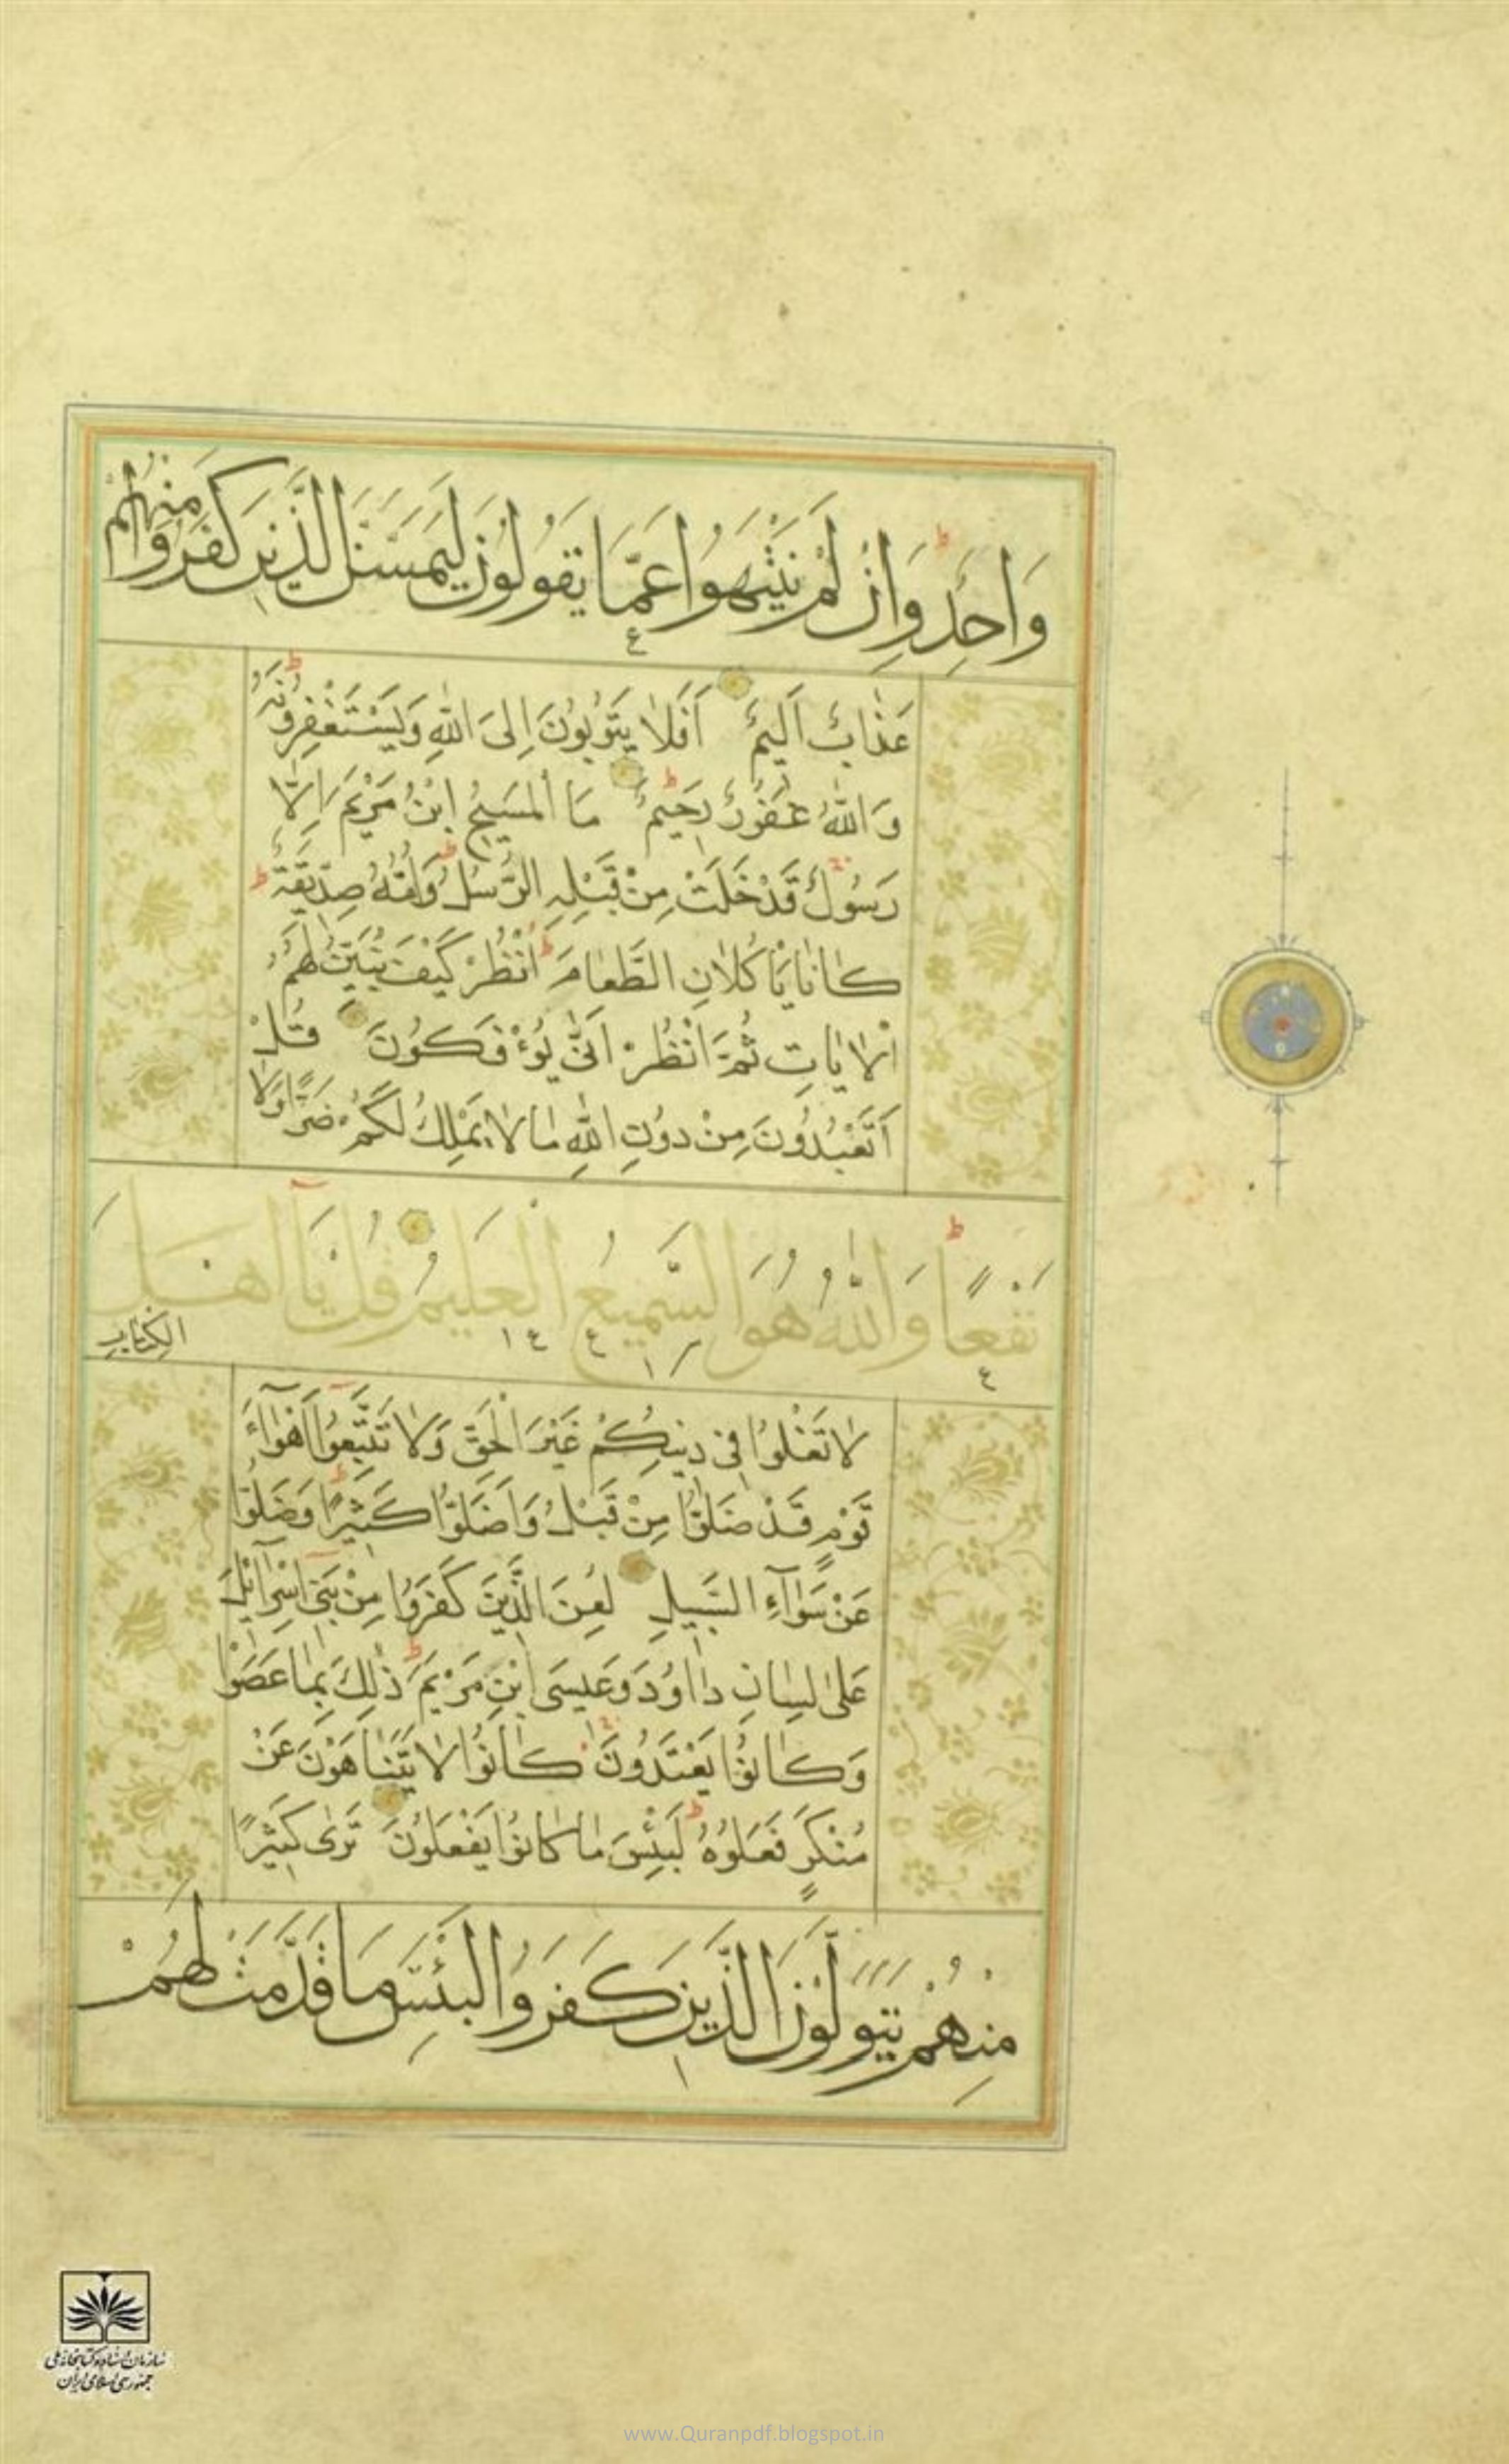 وَاحِدٌ وَاِنْ لَمْ يَنْتَهُوا عَمَّا يَقُولُونَ لَيَمَسَّنَّ الَّذِينَ كَفَرُوا مِنْهُمْ
عَذَابٌ اَلِيمٌ اَفَلَا يَتُوبُونَ اِلَى اللّٰهِ وَيَسْتَغْفِرُونَهُ
وَاللّٰهُ غَفُورٌ رَحِيمٌ مَا الْمَسِيحُ ابْنُ مَرْيَمَ اِلَّا
رَسُولٌ قَدْ خَلَتْ مِنْ قَبْلِهِ الرُّسُلُ وَاُمُّهُ صِدِّيقَةٌ
كَانَا يَاْكُلَانِ الطَّعَامَ اُنْظُرْ كَيْفَ نُبَيِّنُ لَهُمُ
الْاٰيَاتِ ثُمَّ انْظُرْ اَنّٰى يُؤْفَكُونَ قُلْ
اَتَعْبُدُونَ مِنْ دُونِ اللّٰهِ مَا لَا يَمْلِكُ لَكُمْ ضَرًّا وَلَا
نَفْعًا وَاللّٰهُ هُوَ السَّمِيعُ الْعَلِيمُ قُلْ يَآ اَهْلَ
الْكِتَابِ
لَا تَغْلُوا فِي دِينِكُمْ غَيْرَ الْحَقِّ وَلَا تَتَّبِعُوا اَهْوَآءَ
قَوْمٍ قَدْ ضَلُّوا مِنْ قَبْلُ وَاَضَلُّوا كَثِيرًا وَضَلُّوا
عَنْ سَوَآءِ السَّبِيلِ لُعِنَ الَّذِينَ كَفَرُوا مِنْ بَنِي اِسْرَآئِيلَ
عَلٰى لِسَانِ دَاوُدَ وَعِيسَى ابْنِ مَرْيَمَ ذٰلِكَ بِمَا عَصَوْا
وَكَانُوا يَعْتَدُونَ كَانُوا لَا يَتَنَاهَوْنَ عَنْ
مُنْكَرٍ فَعَلُوهُ لَبِئْسَ مَا كَانُوا يَفْعَلُونَ تَرٰى كَثِيرًا
مِنْهُمْ يَتَوَلَّوْنَ الَّذِينَ كَفَرُوا لَبِئْسَ مَا قَدَّمَتْ لَهُمْ
سازمان اسناد و کتابخانه ملی
جمهوری اسلامی ایران
www.Quranpdf.blogspot.in